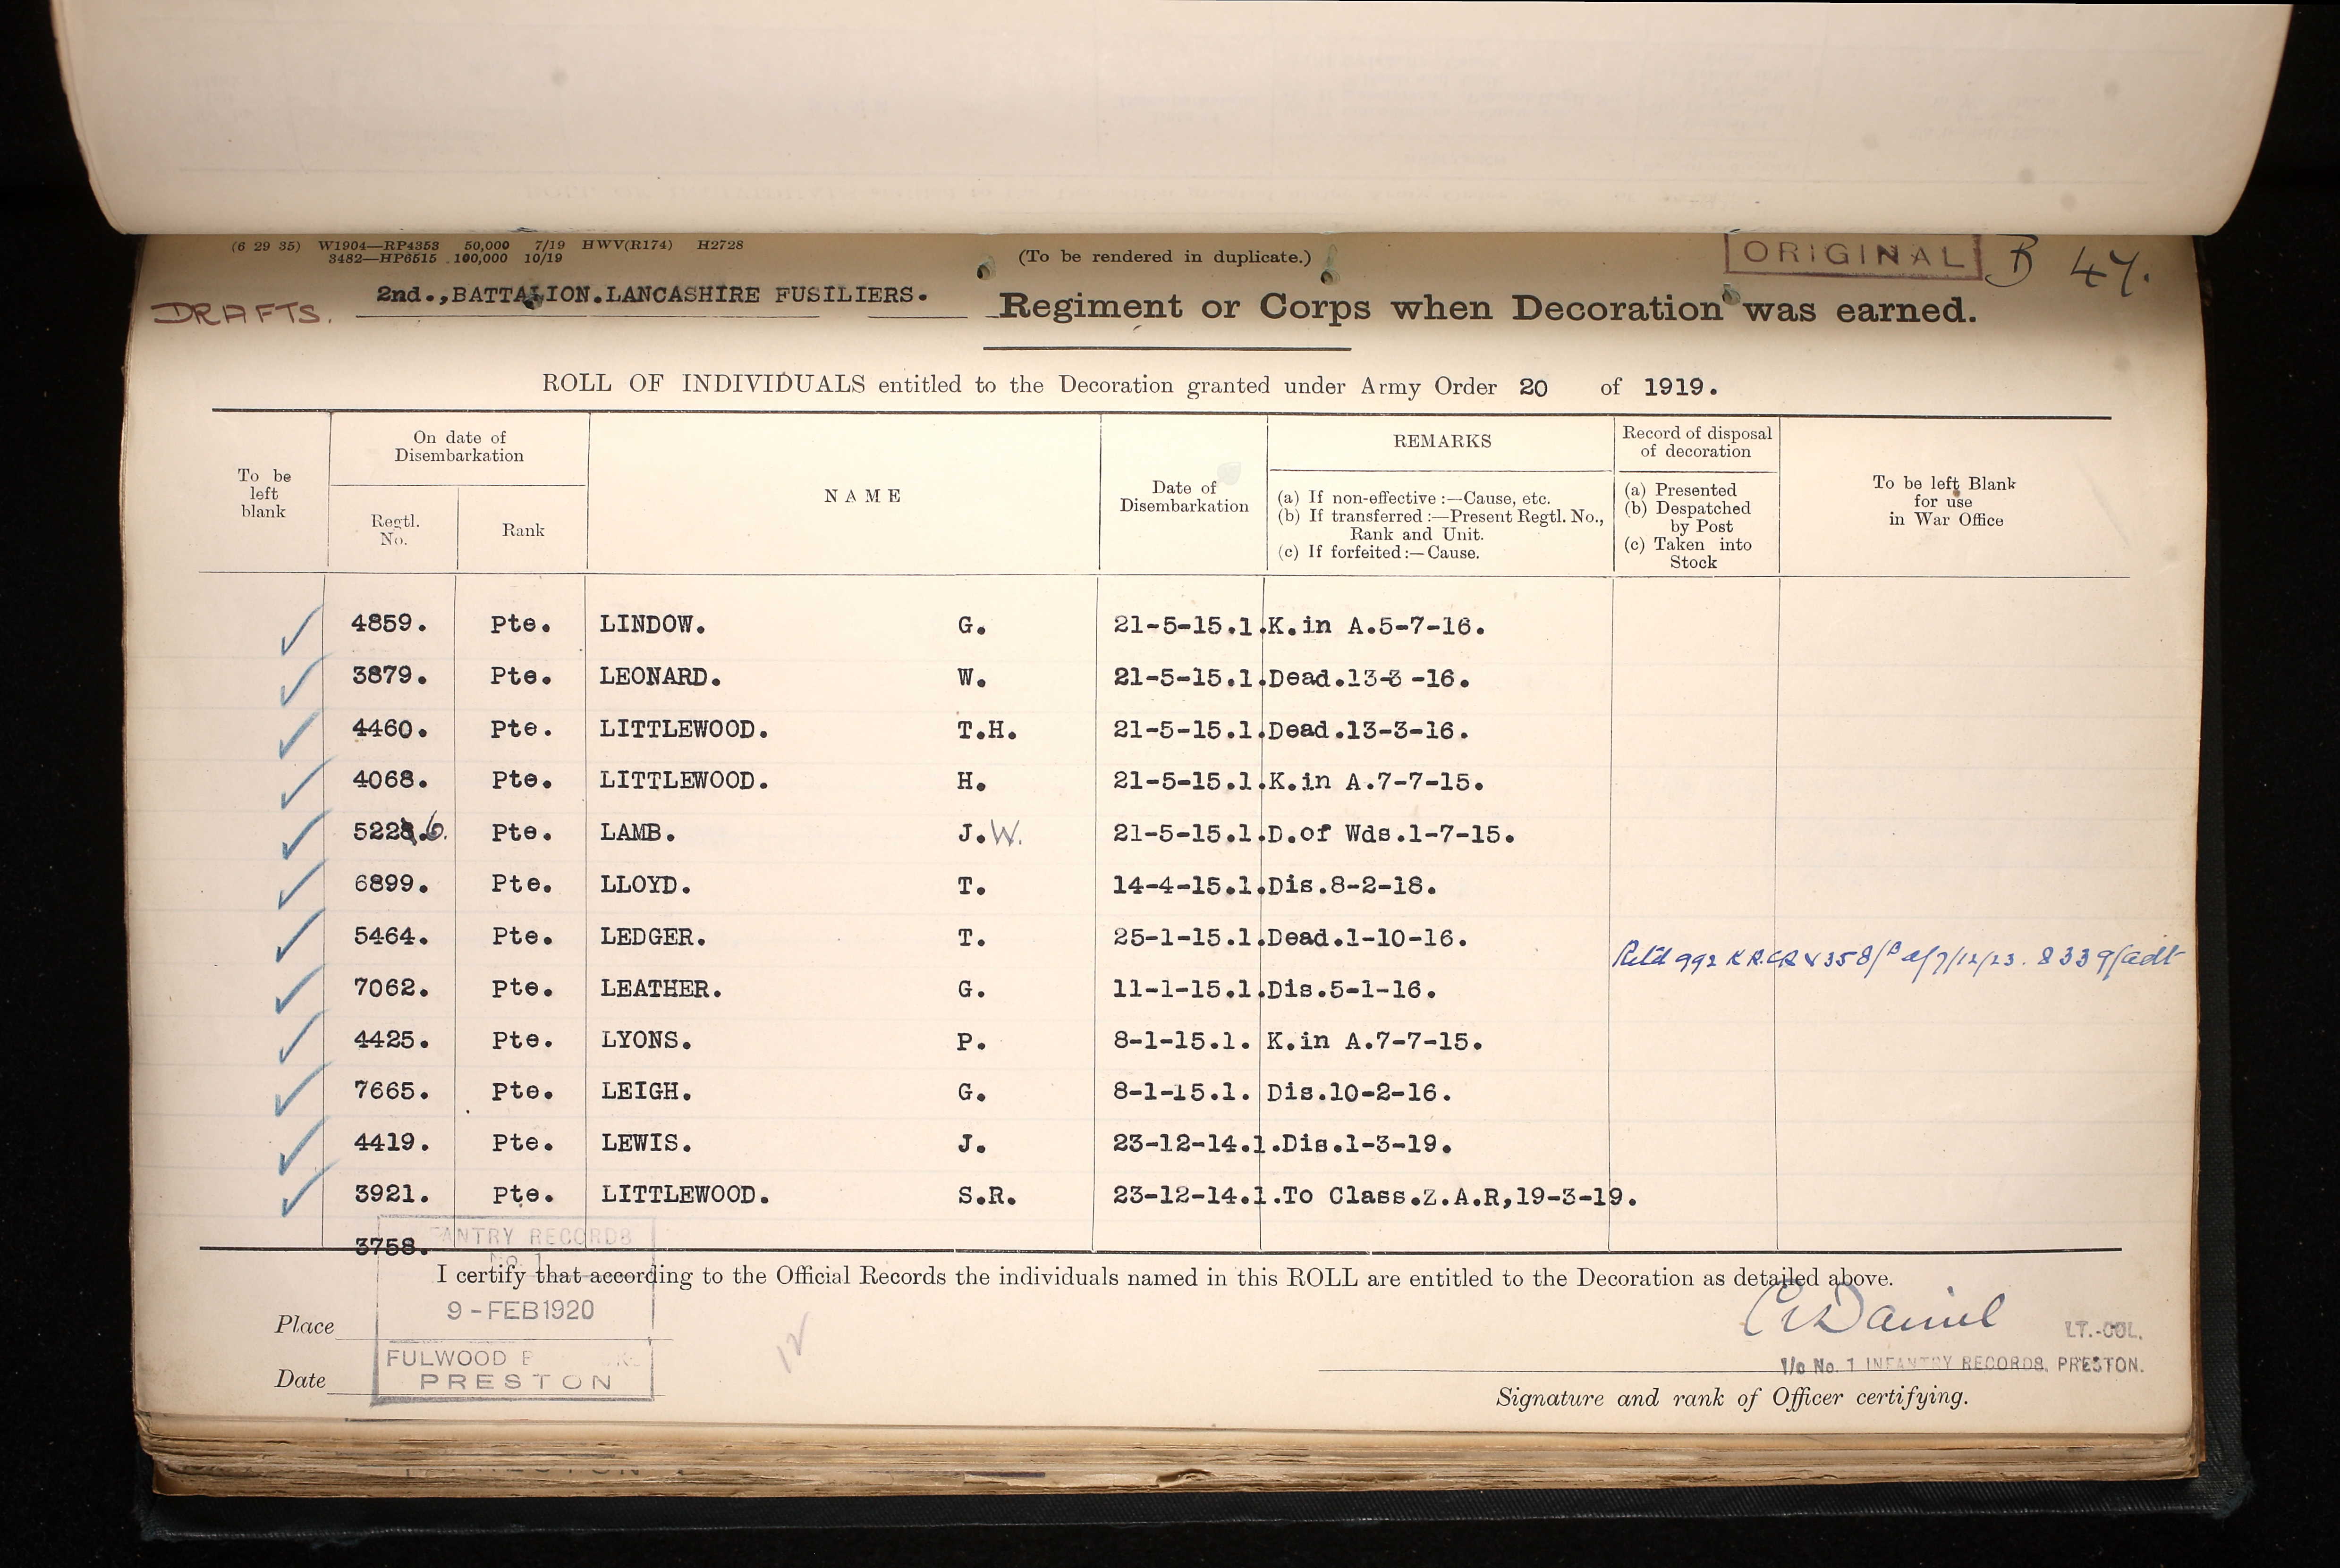 (6 29 35) W1904—RP4353 50,000 7/19 HWV(R174) H2728
3482—HP6515 100,000 10/19
(To be rendered in duplicate.)
ORIGINAL
B 47.
DRAFTS.
2nd.,BATTALION.LANCASHIRE FUSILIERS.
Regiment or Corps when Decoration was earned.
ROLL OF INDIVIDUALS entitled to the Decoration granted under Army Order 20 of 1919.
To be left blank
On date of Disembarkation
Regtl. No.
Rank
NAME
Date of Disembarkation
REMARKS
(a) If non-effective :—Cause, etc.
(b) If transferred :—Present Regtl. No., Rank and Unit.
(c) If forfeited :—Cause.
Record of disposal of decoration
(a) Presented
(b) Despatched by Post
(c) Taken into Stock
To be left Blank for use in War Office
4859. Pte. LINDOW. G. 21-5-15.1.K.in A.5-7-16.
3879. Pte. LEONARD. W. 21-5-15.1.Dead.13-3 -16.
4460. Pte. LITTLEWOOD. T.H. 21-5-15.1.Dead.13-3-16.
4068. Pte. LITTLEWOOD. H. 21-5-15.1.K.in A.7-7-15.
522 6. Pte. LAMB. J.W. 21-5-15.1.D.of Wds.1-7-15.
6899. Pte. LLOYD. T. 14-4-15.1.Dis.8-2-18.
5464. Pte. LEDGER. T. 25-1-15.1.Dead.1-10-16.
Retd 992 K.R. 8339/adt
7062. Pte. LEATHER. G. 11-1-15.1.Dis.5-1-16.
4425. Pte. LYONS. P. 8-1-15.1. K.in A.7-7-15.
7665. Pte. LEIGH. G. 8-1-15.1. Dis.10-2-16.
4419. Pte. LEWIS. J. 23-12-14.1.Dis.1-3-19.
3921. Pte. LITTLEWOOD. S.R. 23-12-14.1.To Class.Z.A.R,19-3-19.
3758.
ANTRY RECORDS
No. 1
I certify that according to the Official Records the individuals named in this ROLL are entitled to the Decoration as detailed above.
9 - FEB 1920
Place
FULWOOD
PRESTON
Date
12
Daniel
LT.-COL.
I/c No. 1 INFANTRY RECORDS, PRESTON.
Signature and rank of Officer certifying.